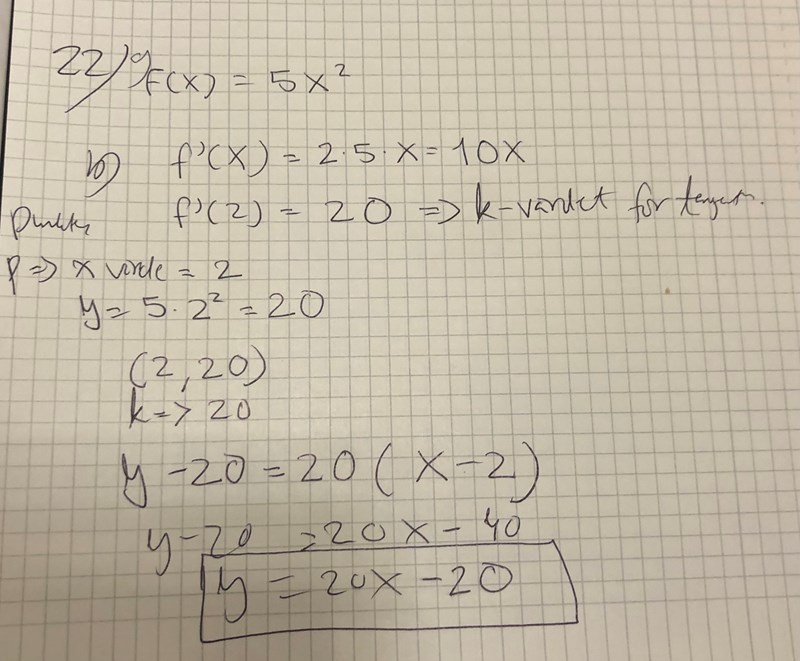 22) g f(x) = 5x²
b) f'(x) = 2·5·x = 10x
f'(2) = 20 => k-värdet för
Punkten
P => x värde = 2
y = 5·2² = 20
(2,20)
k => 20
y - 20 = 20(x-2)
y - 20 = 20x - 40
y = 20x - 20